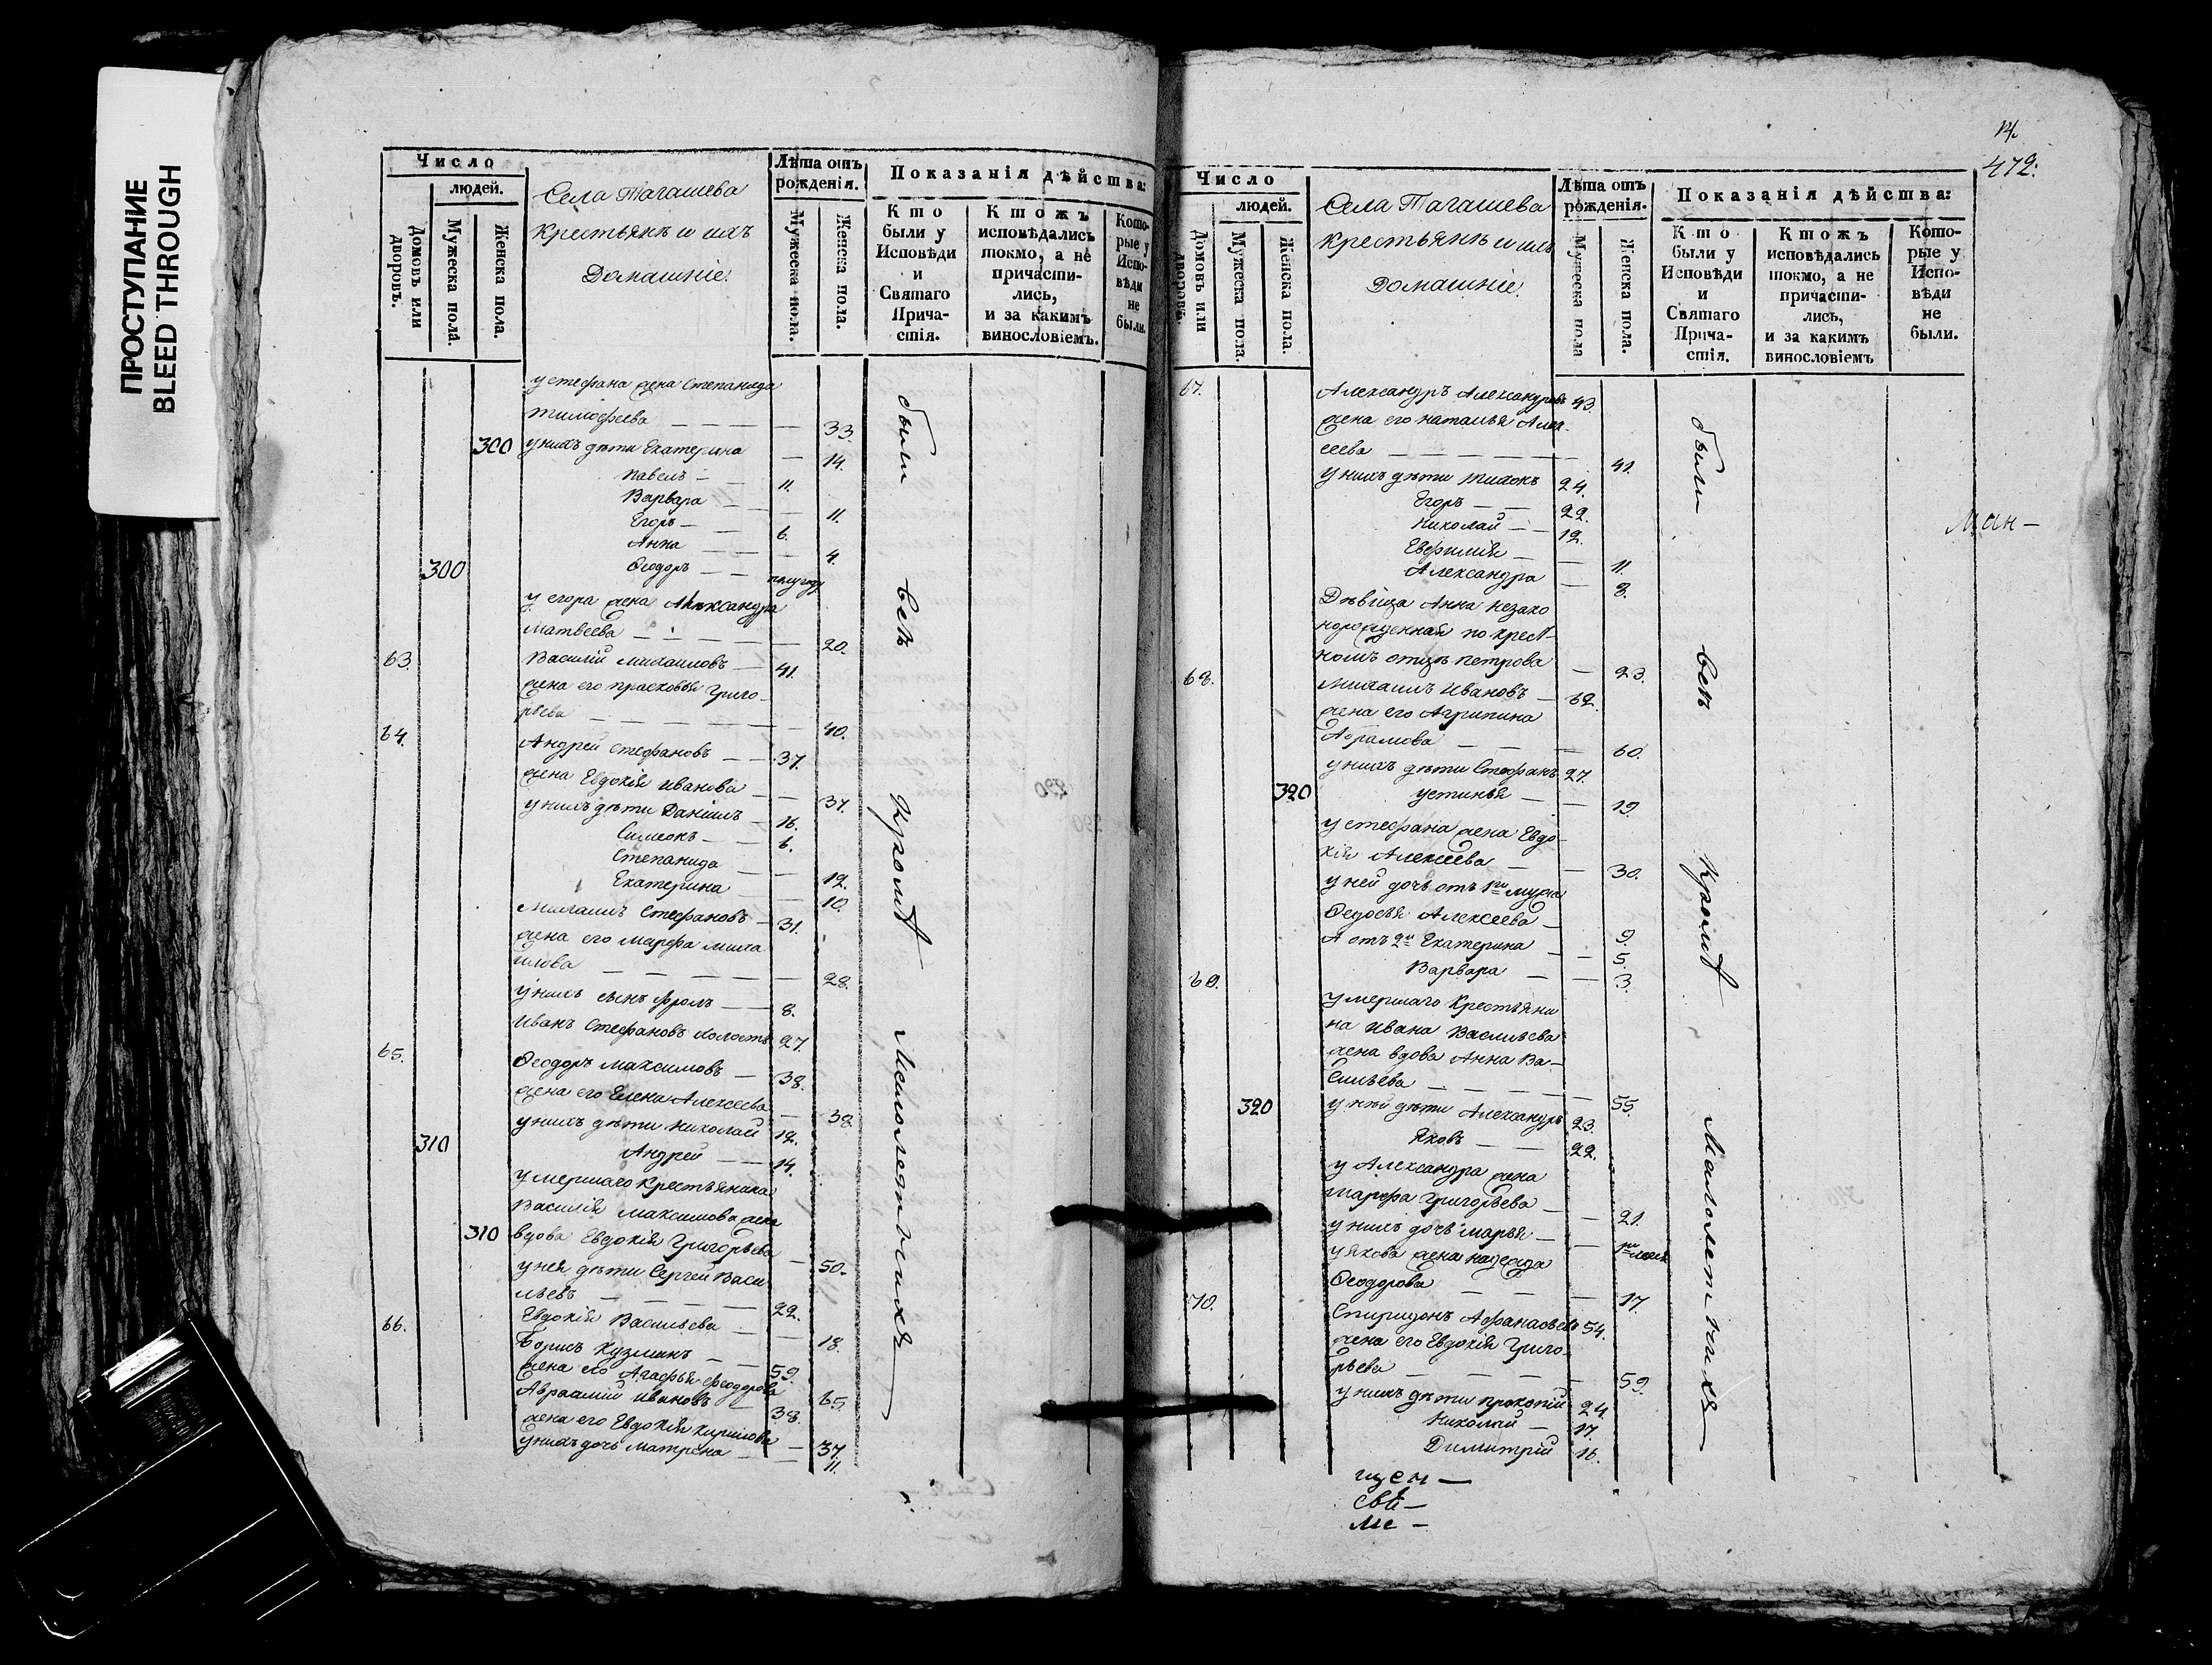 ПРОСТУПАНИЕ
BLEED THROUGH
Число
людей.
Домовъ или дворовъ.
Мужеска пола.
Женска пола.
Села Тагашева
крестьянъ и ихъ
Домашніе.
Лѣта отъ рожденія.
Мужеска пола.
Женска пола.
Показанія дѣйства:
Кто были у Исповѣди и Святаго Прича-стія.
Ктожъ исповѣдались токмо, а не причасти-лись, и за какимъ винословіемъ.
Кото-рые у Испо-вѣди не были.
у стефана жена Степанида
тимофеева — 33.
300 у нихъ дѣти Екатерина — 14.
Павелъ — 11.
Варвара — 11.
Егоръ — 6.
Анна — 4.
300 Ѳеодоръ — полугоду
у егора жена Александра
матвеева — 20.
63. Василій михаиловъ — 41.
жена его прасковья Григо
рьева — 40.
64. Андрей стефановъ — 37.
жена Евдокія иванова — 37.
у нихъ дѣти Даніилъ — 16.
Симеонъ — 6.
Степанида — 12.
Екатерина — 10.
Михаилъ Стефановъ — 31.
жена его марфа миха
илова — 28.
у нихъ сынъ фролъ — 8.
Иванъ Стефановъ холостъ 27.
65. Ѳеодоръ максимовъ — 38.
жена его Елена Алексеева — 38
у нихъ дѣти николай 12.
310 Андрей — 14.
умершаго крестьянина
Василія максимова жена
310 вдова Евдокія Григорьева — 50.
у нея дѣти Сергей Васи
льевъ — 22.
Евдокія Васильева — 18.
66. Борисъ Кузминъ — 59.
жена его Агафья Феодорова 65
Авраамій ивановъ — 38.
жена его Евдокія кирилова — 37.
у нихъ дочь матрена — 11.
были всѣ кромѣ Малолетнихъ
14.
472.
Число
людей.
Домовъ или дворовъ.
Мужеска пола.
Женска пола.
Села Тагашева
крестьянъ и ихъ
Домашніе.
Лѣта отъ рожденія.
Мужеска пола
Женска пола.
Показанія дѣйства:
Кто были у Исповѣди и Святаго Прича-стія.
Ктожъ исповѣдались токмо, а не причасти-лись, и за какимъ винословіемъ
Кото-рые у Испо-вѣди не были.
67. Александръ Александровъ 43.
жена его наталья Алек-
сеева — 41.
у нихъ дѣти тихонъ 24.
Егоръ — 22.
николай — 12.
Евфимія — 11.
Александра — 8.
Дѣвица Анна незако
норожденная по крест-
номъ отцѣ петрова — 23.
68. михаилъ Ивановъ — 62.
жена его Агрипина
Абрамова — 60.
у нихъ дѣти Стефанъ 27.
320 устинья — 19.
у стефана жена Евдо-
кія Алексеева — 30.
у ней дочь отъ 1го мужа
Ѳедосья Алексеева — 9.
А отъ 2го Екатерина — 5.
Варвара — 3.
69. умершаго крестьяни
на ивана Васильева
жена вдова Анна Ва-
сильева — 55.
320 у ней дѣти Александръ 23.
Яковъ — 22.
у Александра жена
марфа Григорьева — 21.
у нихъ дочь марья —
у якова жена надежда
Ѳеодорова — 17.
70. Спиридонъ Афанасьевъ 54.
жена его Евдокія Григо-
рьева — 59.
у нихъ дѣти прокопій 24.
николай — 17.
Димитрій 16.
были всѣ кромѣ Малолетнихъ
щен —
свѣ —